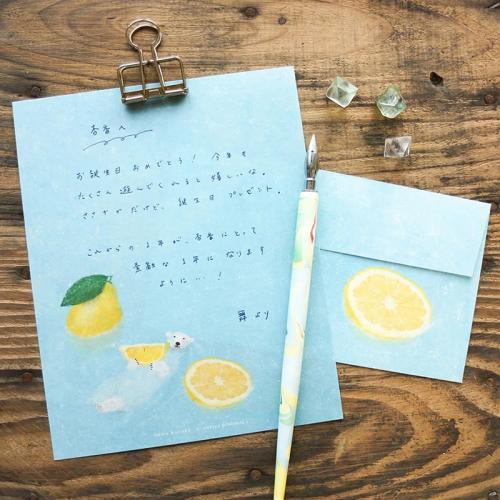 お誕生日おめでとう！今年も
たくさん遊んでくれると嬉しいな。
ささやかだけど、誕生日プレゼント。
これからの1年が、杏香にとって
素敵な1年になります
ように…！
舞より